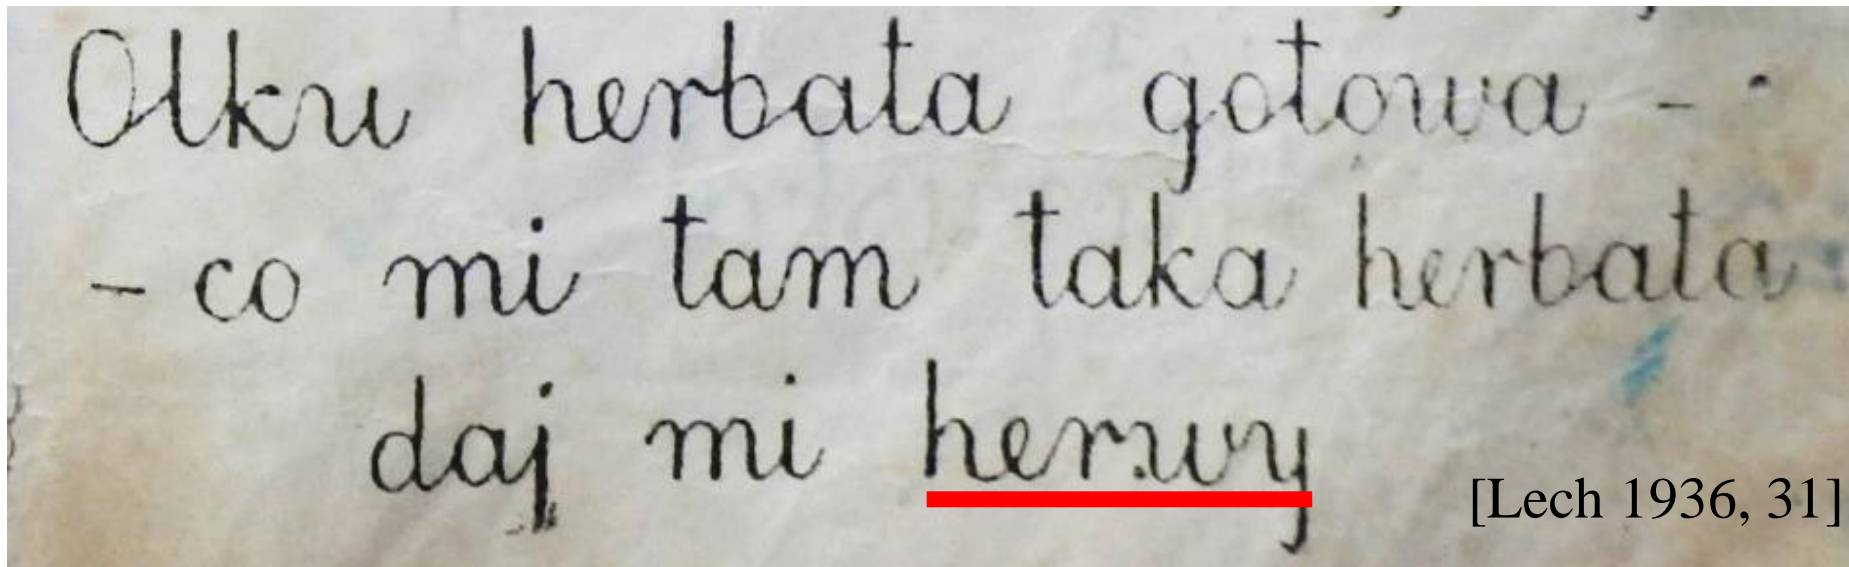 Olku herbata gotowa -
- co mi tam taka herbata
daj mi herwy
[Lech 1936, 31]